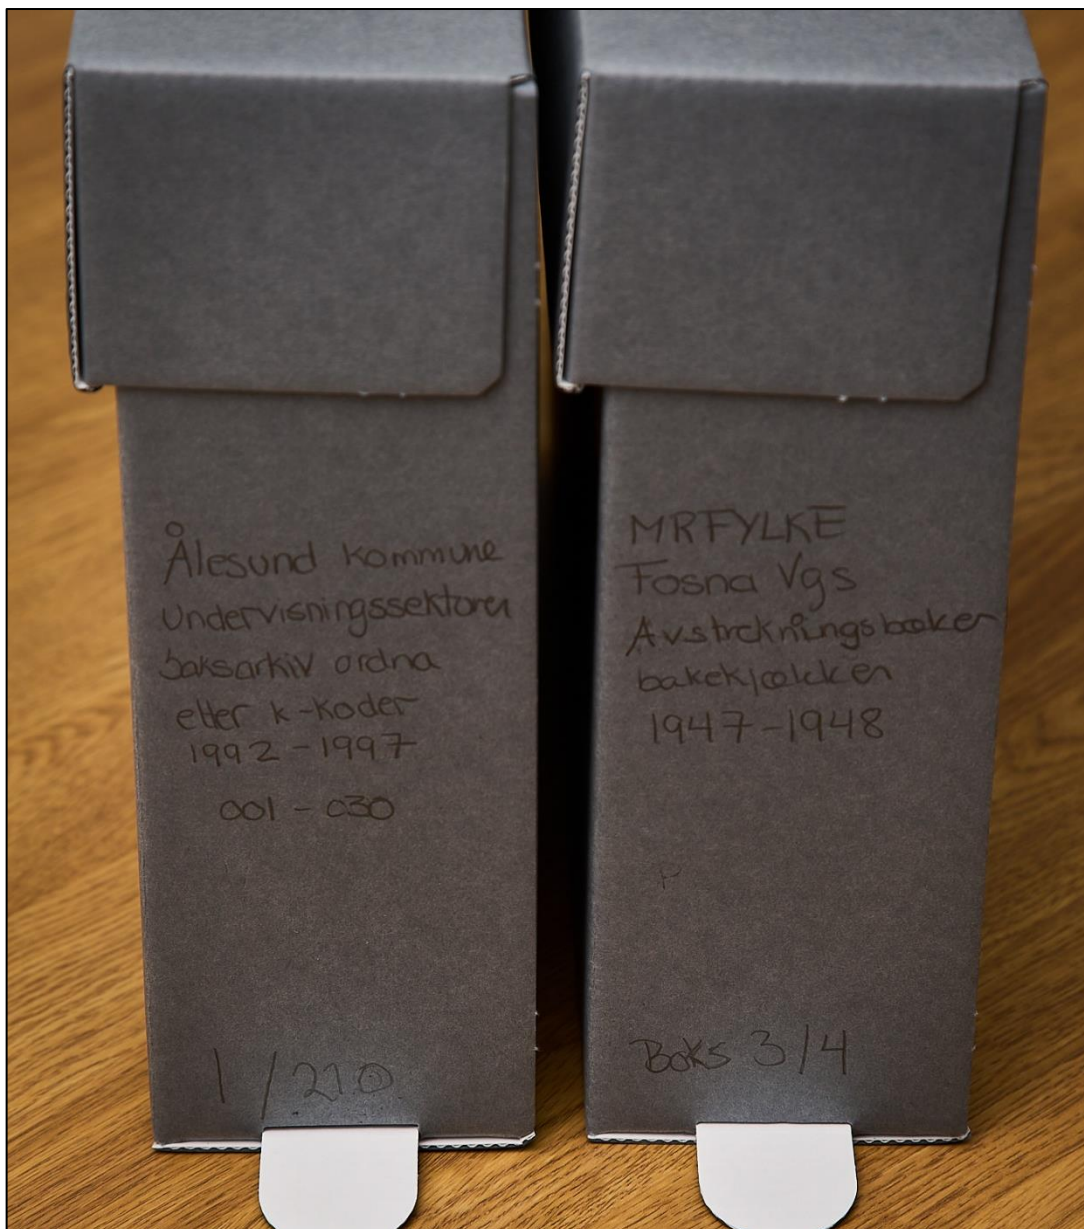 Ålesund kommune
Undervisningssektoren
Saksarkiv ordna
etter k-koder
1992 - 1997
001 - 030
1 / 210
MRFYLKE
Fosna Vgs
Avstrekningsbøker
bakekjøkken
1947-1948
Boks 3/4